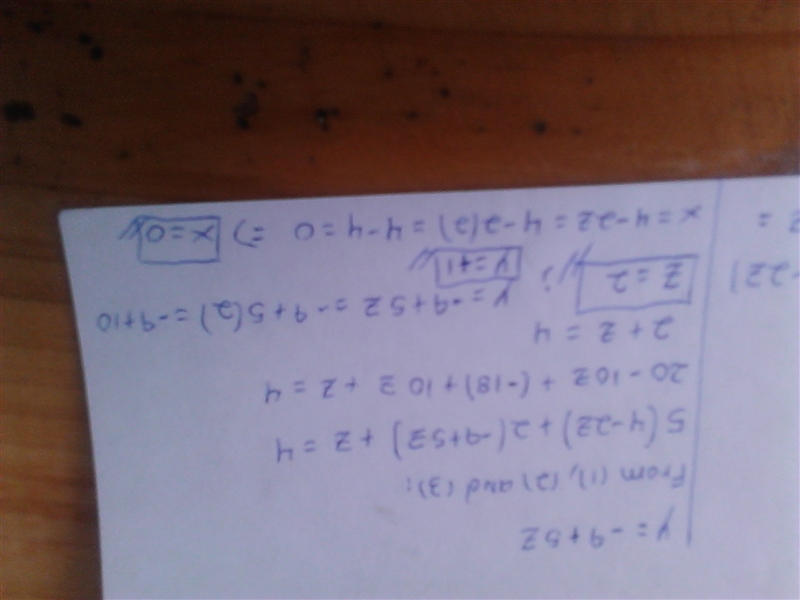 y = -9+5z
From (1), (2) and (3):
5(4-2z)+2(-9+5z) + z = 4
20-10z + (-18)+10z + z = 4
2+z = 4
z = 2 ; y = -9+5z = -9+5(2) = -9+10
y = +1
x = 4-2z = 4-2(2) = 4-4 = 0 => x = 0
-2z)
z =